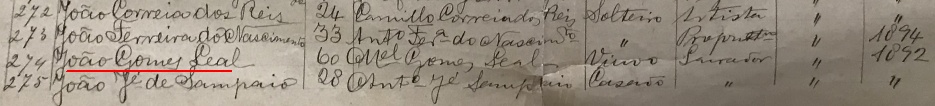 272 João Correia dos Reis 24 Camillo Correia dos Reis Solteiro Artista " "
273 João Ferreira do Nascimento 33 Anto Fera do Nascimto " Proprietro " 1894
274 João Gomes Leal 60 Mel Gomes Leal Viuvo Lavrador " 1892
275 João Jé de Sampaio 28 Anto Jé Sampaio Casado " " "